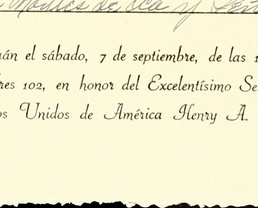 Montes de Oca y
án el sábado, 7 de septiembre, de las 1
res 102, en honor del Excelentísimo Se
os Unidos de América Henry A.